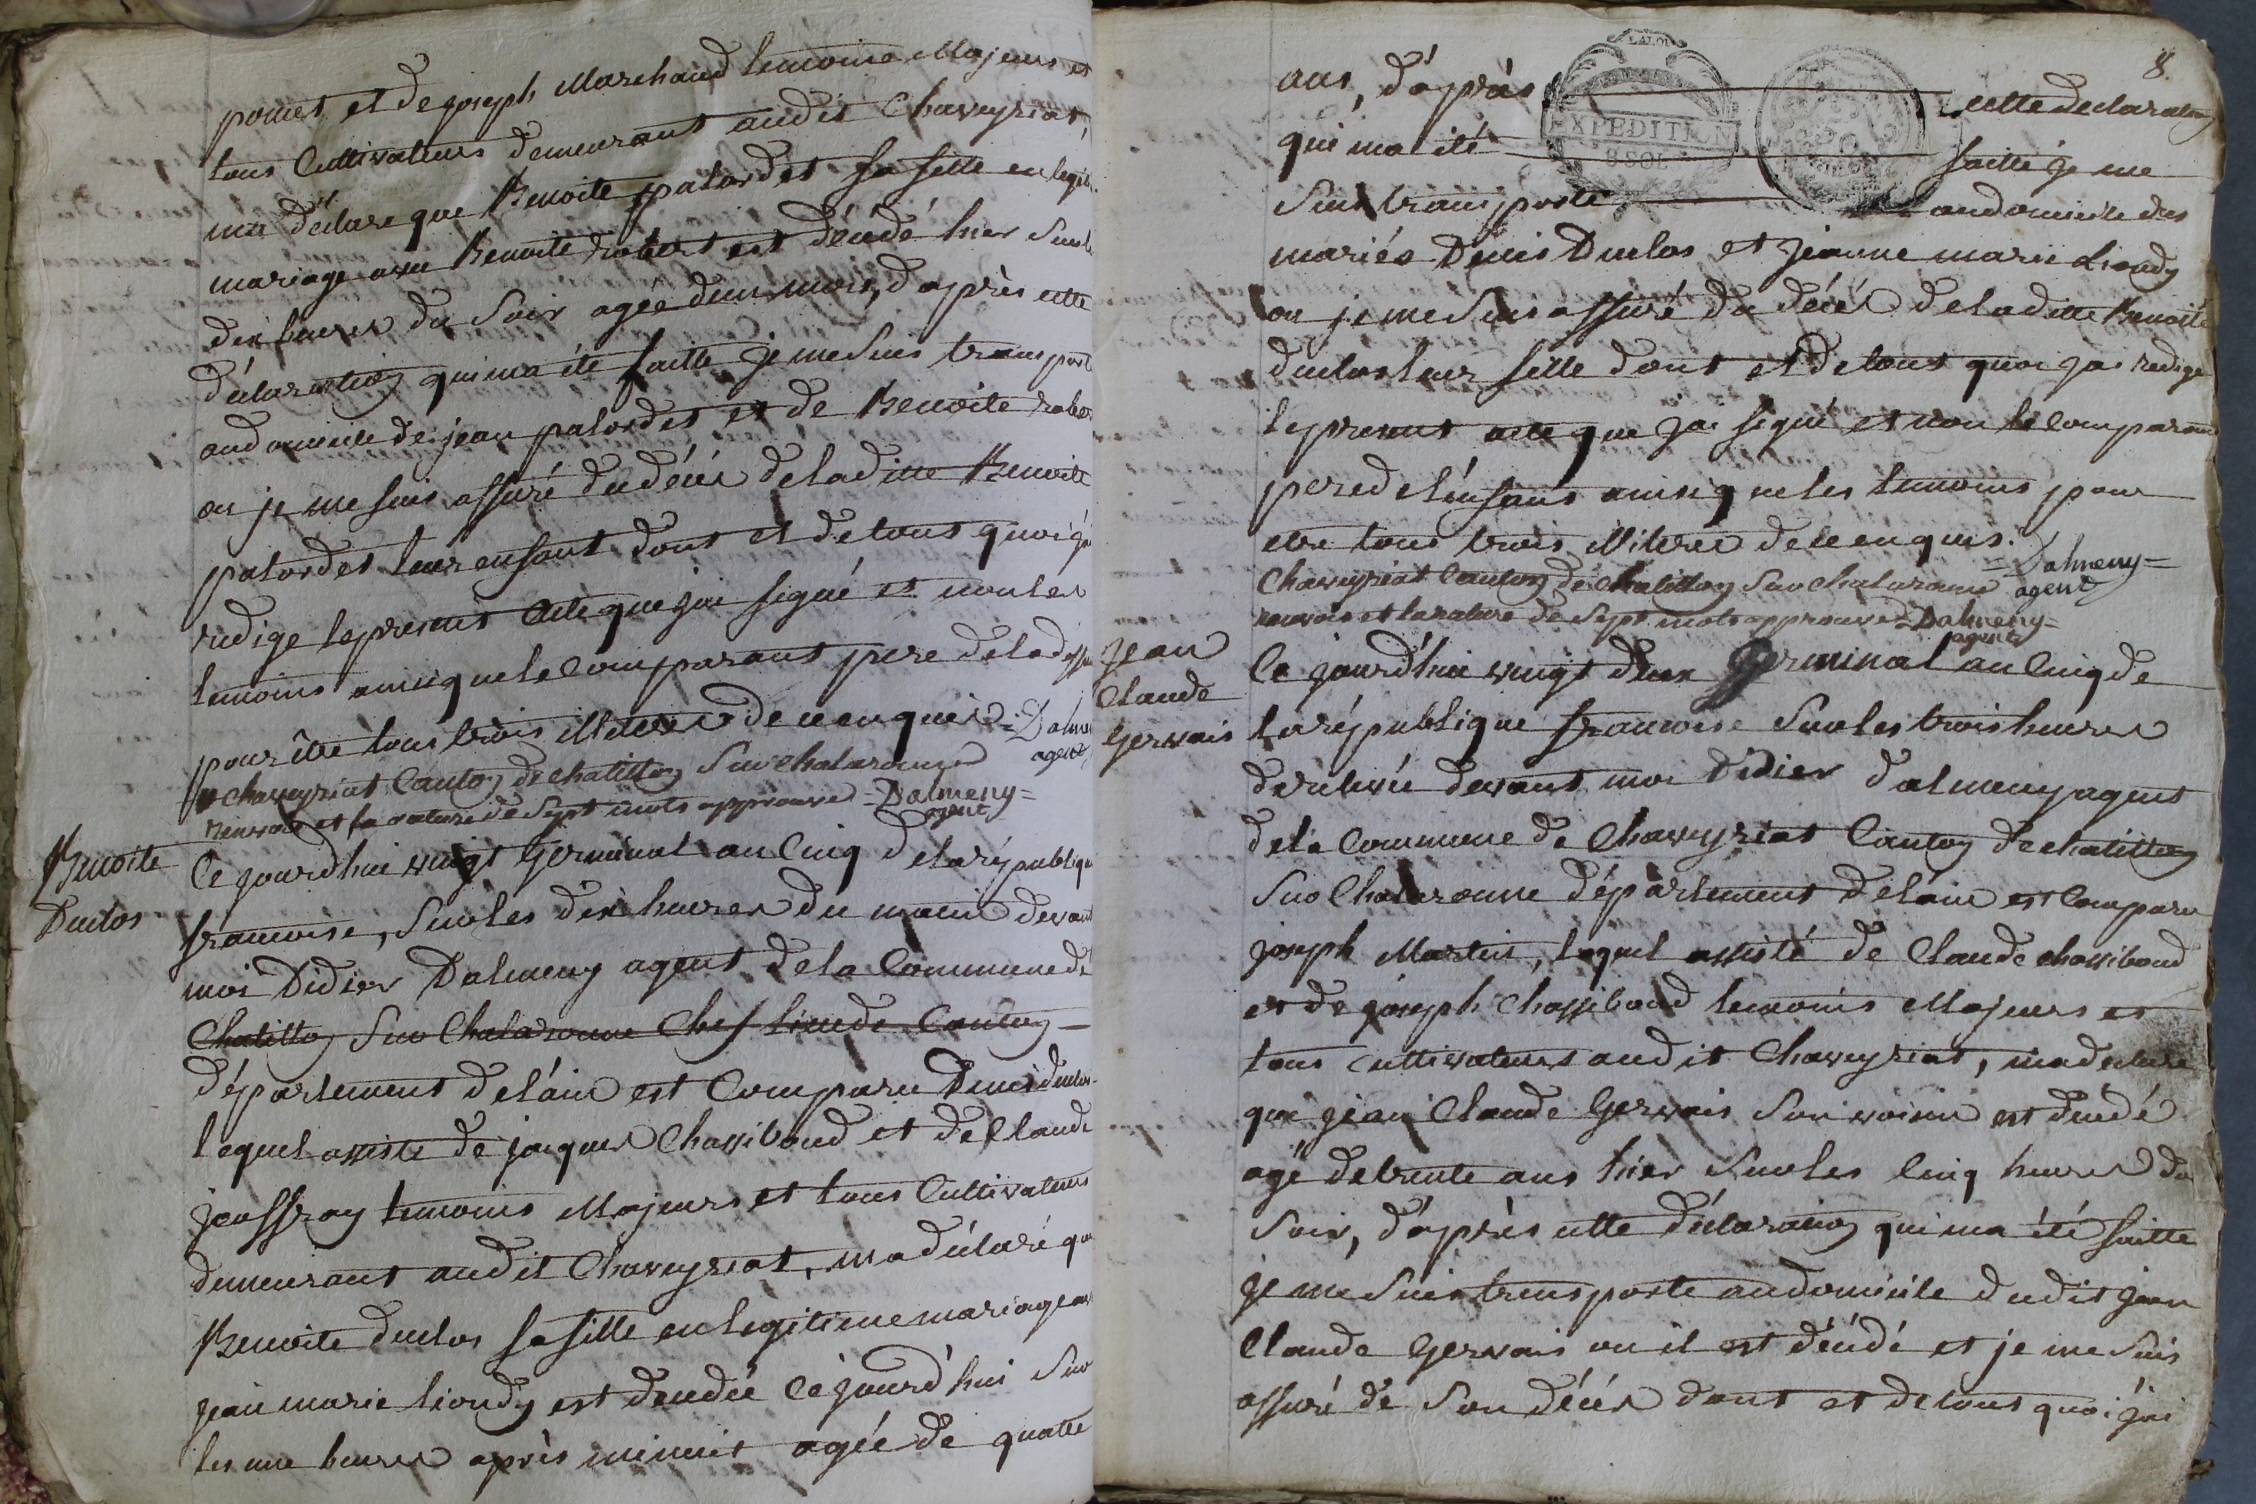 pouet et de joseph Marchand temoins Majeurs et
tous Cultivateurs demeurant audit Chaveyriat,
ma déclare que Benoite palordet sa fille en legit
mariage avec Benoite robert est décédé hier sur le
dix heures du soir agée d'un mois, d'après cette
déclaration qui ma été faitte je me suis transport
au domicile de jean palordet et de Benoite rober
ou je me suis assuré du décès de laditte Benoite
palordet leur enfant dont et de tout quoi j'ai
redige le present acte que j'ai signé et non les
temoins ainsi que le comparant pere de la
pour être tous trois illiteres de ce enquis = Dalme
agent
chaveyriat Canton de chatillon sur chalaronne
renvoie et la rature de sept mots approuvé = Dalmeny =
agent
Benoite
Duclos
Ce jourd'hui vingt Germinal an Cinq de la république
francoise, sur les dix heures du matin devant
moi Didier Dalmeny agent de la Commune de
Chatillon sur Chalaronne Chef lieu de Canton
département de l'ain est Comparu Denis duclos
lequel assisté de jacques Chassiboud et de Claude
jeoffray temoins Majeurs et tous Cultivateurs
demeurant audit Chaveyriat, ma déclaré que
Benoite duclos sa fille en legitime mariage avec
jean marie lioudy est decedée Ce jourd'hui sur
les une heures après minuit agée de quatre
8.
LALOI
EXPEDITION
ans, d'après cette declaration
qui ma été faitte je me
suis transporté au domicile des
mariés Denis Duclos et jeanne marie Lioudy
ou je me suis assuré du décès de laditte Benoite
duclos leur fille dont et de tout quoi j'ai redige
le present acte que j'ai signé et non le comparant
pere de l'enfant ainsi que les temoins pour
etre tous trois illiteres de ce enquis. = Dalmeny =
agent
Chaveyriat Canton de Chatillon sur chalaronne
renvoie et la rature de sept mots approuvé = Dalmeny =
agent
jean
Claude
Gervais
Ce jourd'hui vingt deux Germinal an Cinq de
la république francoise sur les trois heures
de relevée devant moi Didier d'almeny agent
de la Commune de Chaveyriat Canton de chatillon
sur Chalaronne département de l'ain est Comparu
joseph Martin, lequel assisté de Claude chassiboud
et de joseph Chassiboud temoins Majeurs et
tous Cultivateurs audit Chaveyriat, ma declare
que jean Claude Gervais son voisin est décédé
agé de trente ans hier sur les Cinq heures du
soir, d'après cette déclaration qui ma été faitte
je me suis transporté au domicile dudit jean
Claude Gervais ou il est décédé et je me suis
assuré de son décès dont et de tout quoi j'ai